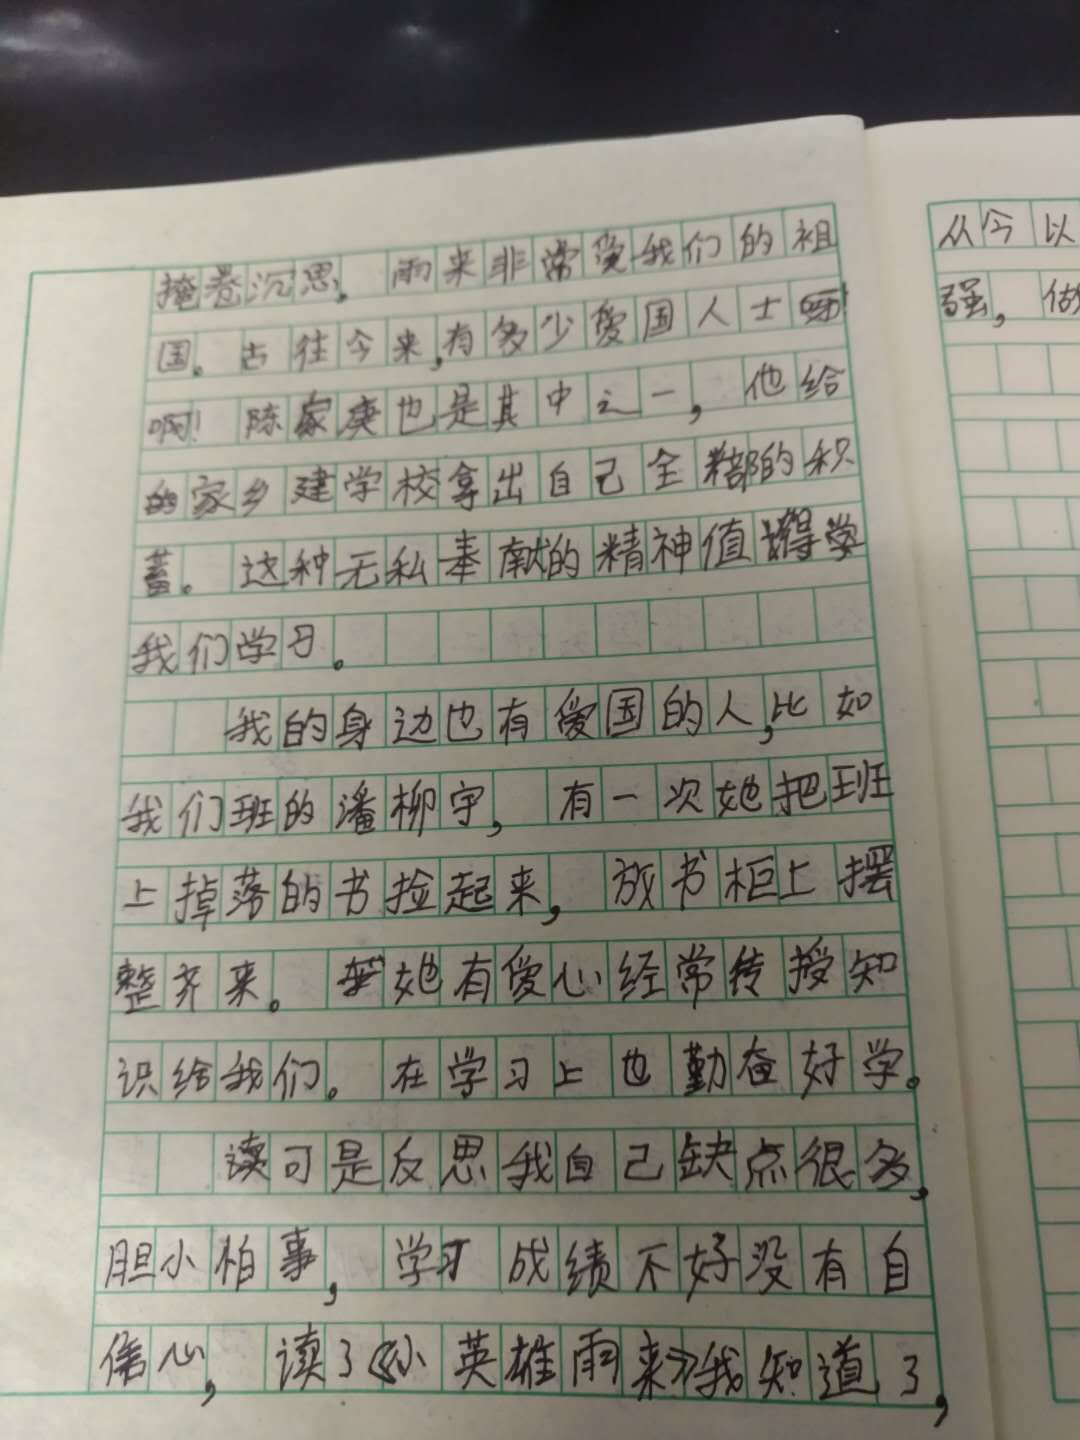 掩卷沉思。雨来非常爱我们的祖
国。古往今来,有多少爱国人士
啊!陈家庚也是其中之一,他给
家乡建学校拿出自己全部的积
蓄。这种无私奉献的精神值得学
我们学习。
我的身边也有爱国的人,比如
我们班的潘柳宇,有一次她把班
上掉落的书捡起来,放书柜上摆
整齐来。她有爱心经常传授知
识给我们。在学习上也勤奋好学。
读可是反思我自己缺点很多,
胆小怕事,学习成绩不好没有自
信心,读了《小英雄雨来》我知道了,
从今以
强,做